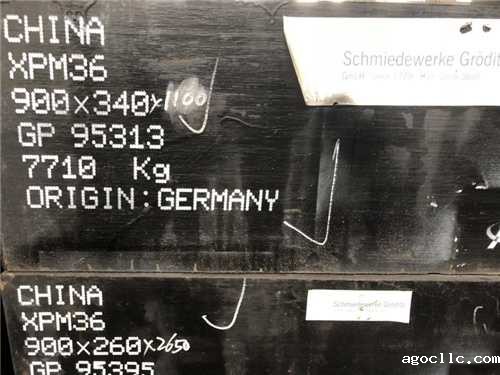 CHINA
XPM36
900x340x1100
GP 95313
7710 Kg
ORIGIN:GERMANY
Schmiedewerke Grödit
CHINA
XPM36
900x260x2650
GP 95395
Schmiedewerke Grödit
agocllc.com